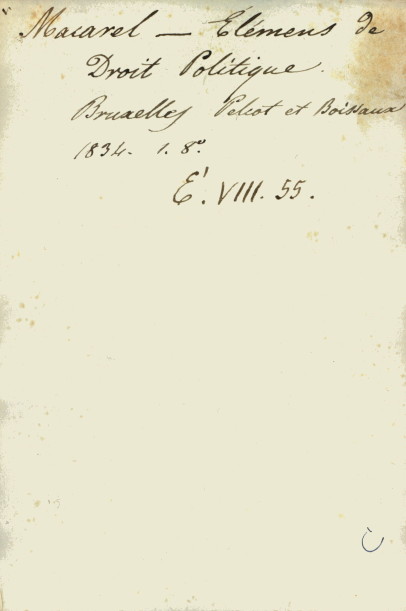 Macarel — Elémens de
Droit Politique.
Bruxelles Pelcot et Boissaux
1834. 1. 8º.
E'. VIII. 55.